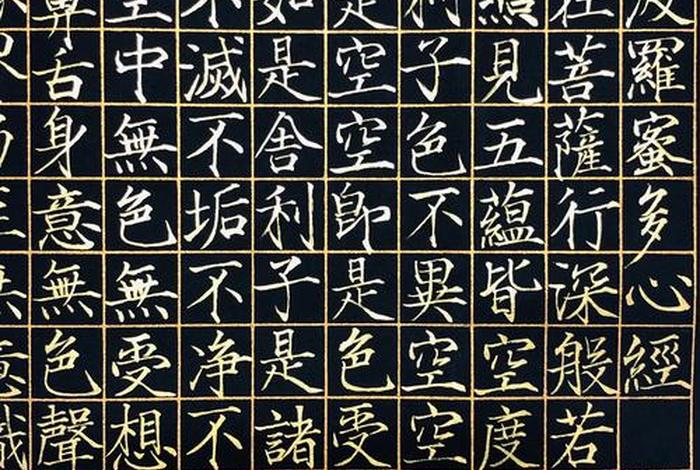 波羅蜜多心經
在菩薩行深般若
照見五蘊皆空度
利子色不異空空
是空空即是色受
如是舍利子是諸
不滅不垢不净不
空中無色無受想
鼻舌身意無色聲
無意識